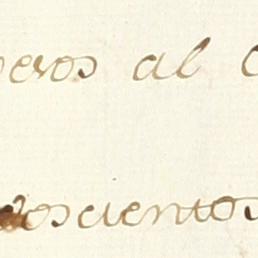 peros al
doscientos